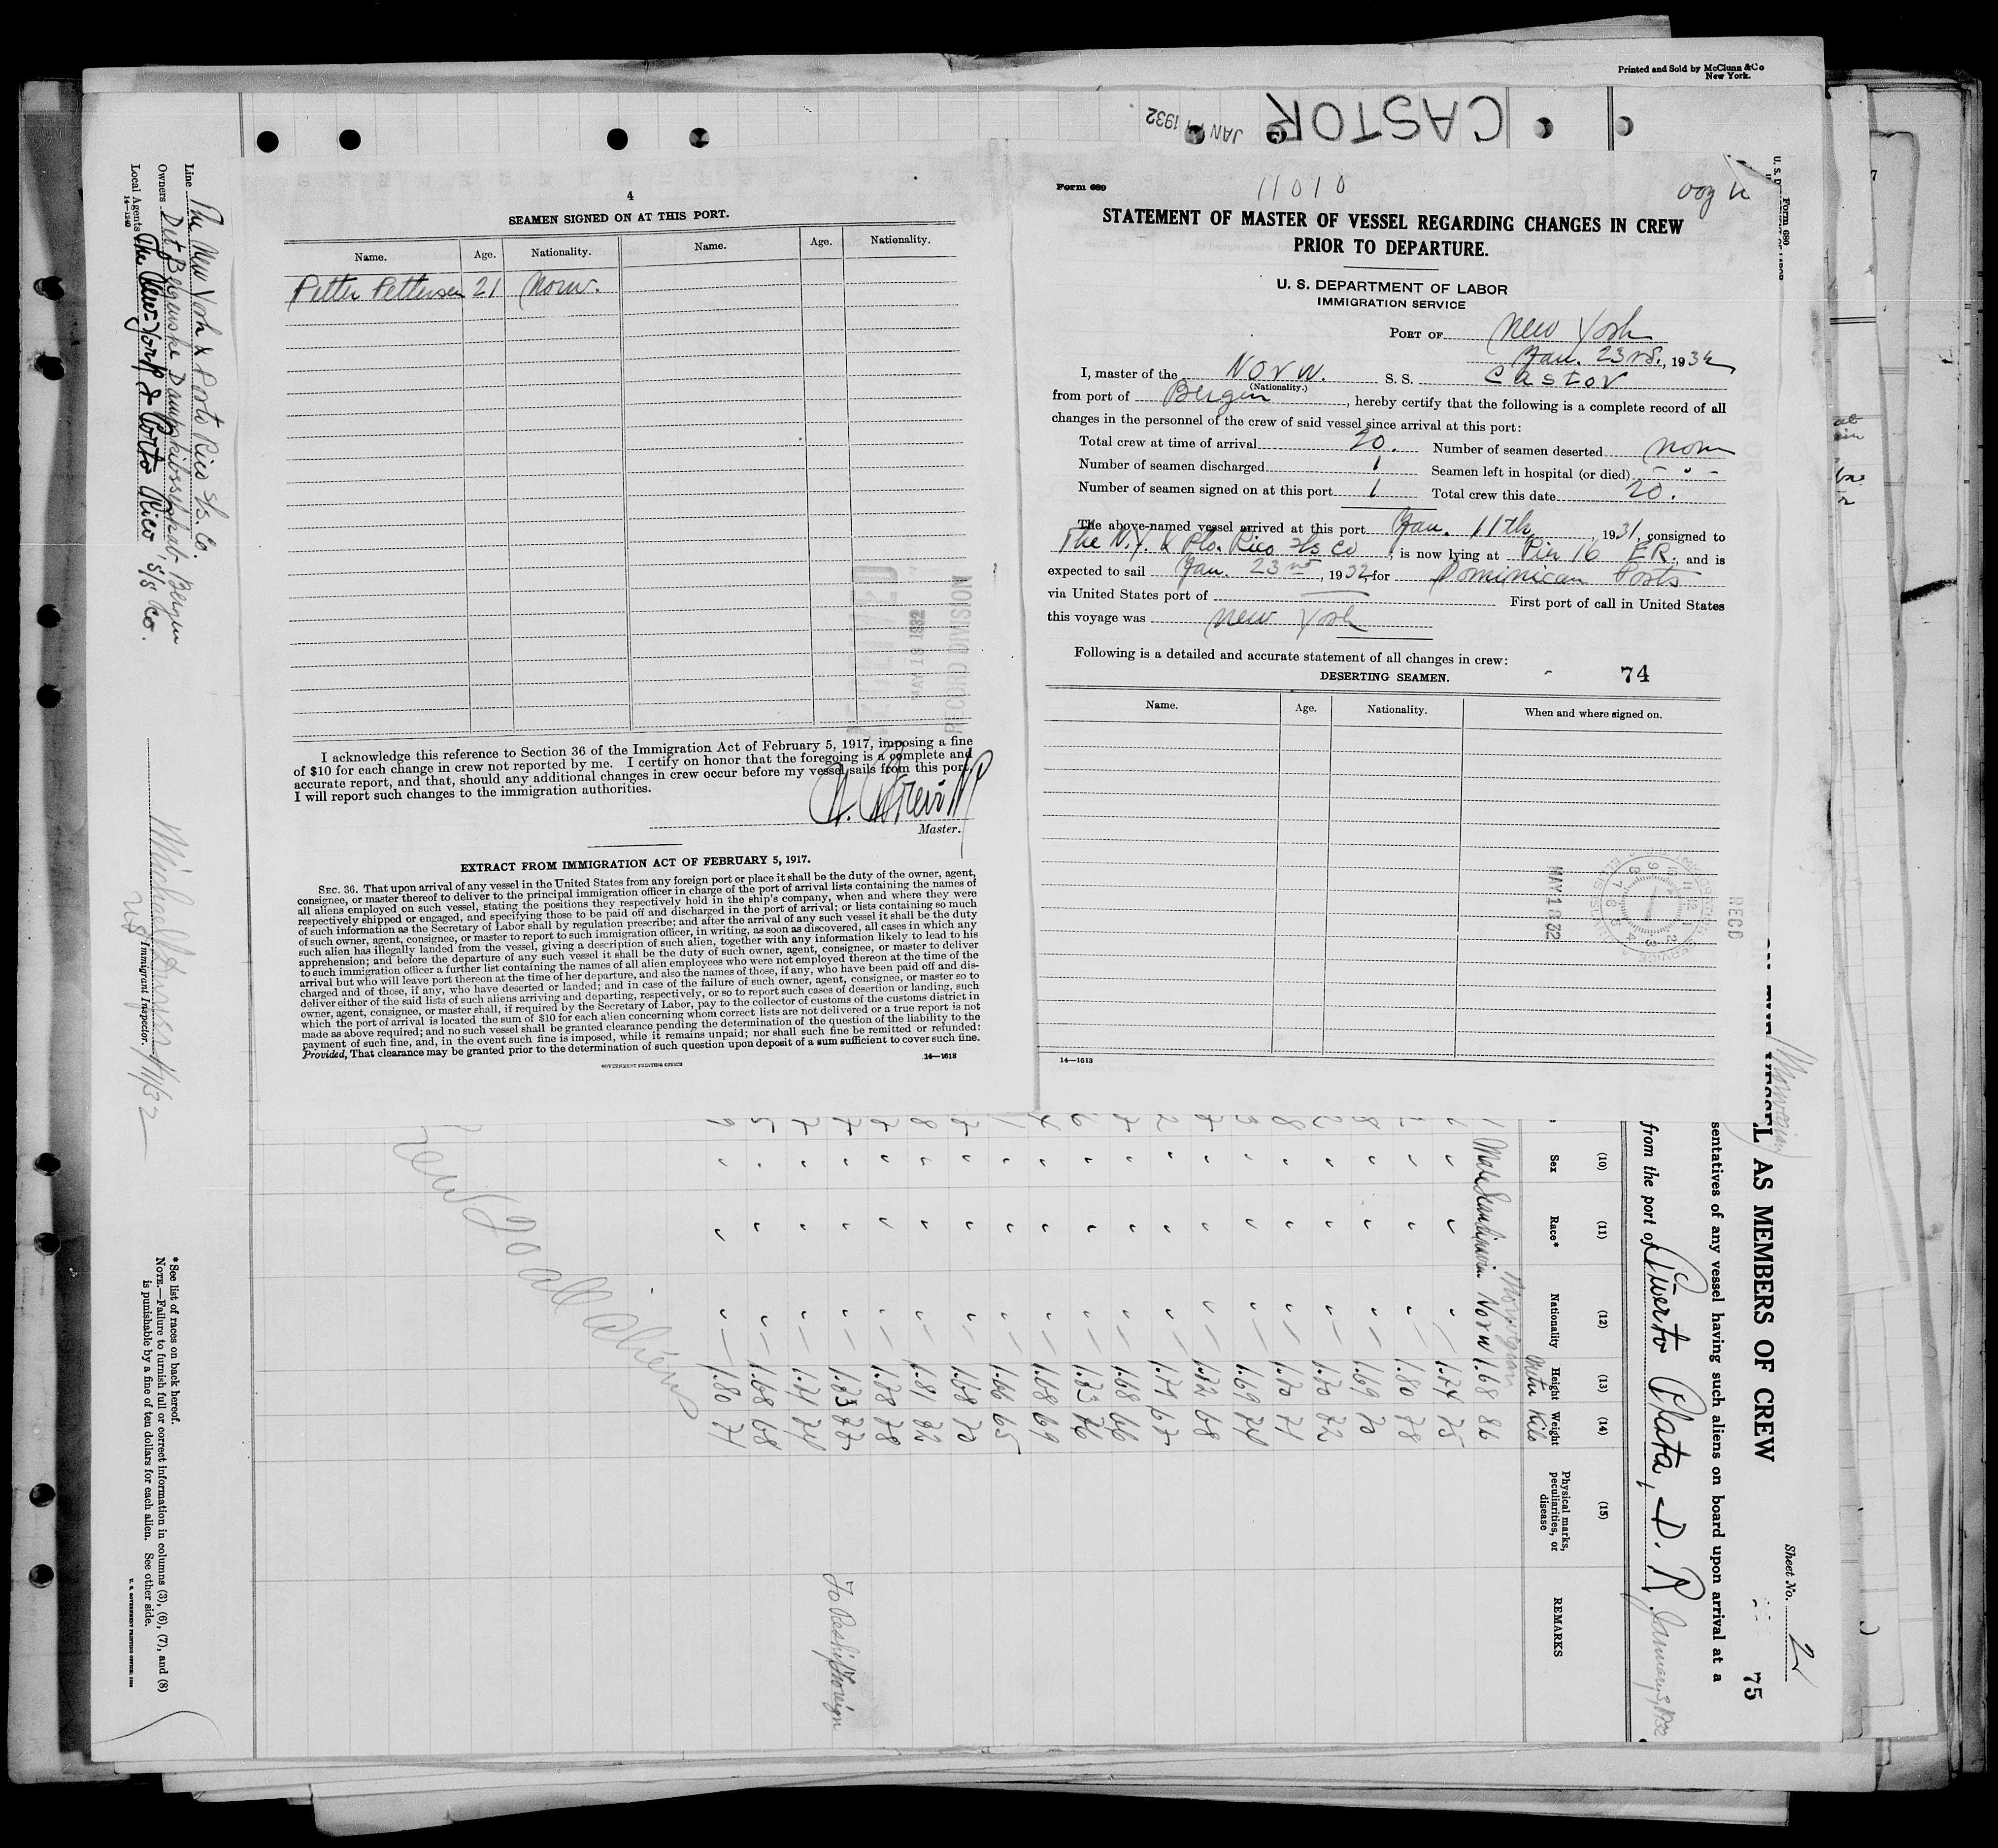 Printed and Sold by McClunn & Co
New York.
CASTOR
JAN 1932
4
SEAMEN SIGNED ON AT THIS PORT.
Name. Age. Nationality. Name. Age. Nationality.
Petter Pettersen 21 Norw.
I acknowledge this reference to Section 36 of the Immigration Act of February 5, 1917, imposing a fine
of $10 for each change in crew not reported by me. I certify on honor that the foregoing is a complete and
accurate report, and that, should any additional changes in crew occur before my vessel sails from this port,
I will report such changes to the immigration authorities.
Master.
RECEIVED
MAY 18 1932
RECORD DIVISION
EXTRACT FROM IMMIGRATION ACT OF FEBRUARY 5, 1917.
SEC. 36. That upon arrival of any vessel in the United States from any foreign port or place it shall be the duty of the owner, agent,
consignee, or master thereof to deliver to the principal immigration officer in charge of the port of arrival lists containing the names of
all aliens employed on such vessel, stating the positions they respectively hold in the ship's company, when and where they were
respectively shipped or engaged, and specifying those to be paid off and discharged in the port of arrival; or lists containing so much
of such information as the Secretary of Labor shall by regulation prescribe; and after the arrival of any such vessel it shall be the duty
of such owner, agent, consignee, or master to report to such immigration officer, in writing, as soon as discovered, all cases in which any
such alien has illegally landed from the vessel, giving a description of such alien, together with any information likely to lead to his
apprehension; and before the departure of any such vessel it shall be the duty of such owner, agent, consignee, or master to deliver
to such immigration officer a further list containing the names of all alien employees who were not employed thereon at the time of the
arrival but who will leave port thereon at the time of her departure, and also the names of those, if any, who have been paid off and dis-
charged and of those, if any, who have deserted or landed; and in case of the failure of such owner, agent, consignee, or master so to
deliver either of the said lists of such aliens arriving and departing, respectively, or so to report such cases of desertion or landing, such
owner, agent, consignee, or master shall, if required by the Secretary of Labor, pay to the collector of customs of the customs district in
which the port of arrival is located the sum of $10 for each alien concerning whom correct lists are not delivered or a true report is not
made as above required; and no such vessel shall be granted clearance pending the determination of the question of the liability to the
payment of such fine, and, in the event such fine is imposed, while it remains unpaid; nor shall such fine be remitted or refunded:
Provided, That clearance may be granted prior to the determination of such question upon deposit of a sum sufficient to cover such fine.
GOVERNMENT PRINTING OFFICE 14—1613
Form 689
11010
STATEMENT OF MASTER OF VESSEL REGARDING CHANGES IN CREW
PRIOR TO DEPARTURE.
U. S. DEPARTMENT OF LABOR
IMMIGRATION SERVICE
PORT OF New York
Jan. 23rd., 1932
I, master of the Norw. S. S. Castor
(Nationality.)
from port of Bergen, hereby certify that the following is a complete record of all
changes in the personnel of the crew of said vessel since arrival at this port:
Total crew at time of arrival 20. Number of seamen deserted none
Number of seamen discharged 1 Seamen left in hospital (or died) - " -
Number of seamen signed on at this port 1 Total crew this date 20.
The above-named vessel arrived at this port Jan. 11th, 1931, consigned to
The N.Y. & Pto. Rico S/s Co, is now lying at Pier 16 E.R., and is
expected to sail Jan. 23rd, 1932, for Dominican Ports
via United States port of First port of call in United States
this voyage was New York
Following is a detailed and accurate statement of all changes in crew:
74
DESERTING SEAMEN.
Name. Age. Nationality. When and where signed on.
MAY 18 32
RECD
14—1613
Form 680
Line The New York & Porto Rico S/s. Co.
Owners Det Bergenske Dampskibsselskab, Bergen
Local Agents The New-York & Porto Rico S/s Co.
14—1240
Immigrant Inspector.
* See list of races on back hereof.
NOTE.—Failure to furnish full or correct information in columns (3), (6), (7), and (8)
is punishable by a fine of ten dollars for each alien. See other side.
Sheet No. 2
75
AS MEMBERS OF CREW
sentatives of any vessel having such aliens on board upon arrival at a
from the port of Puerto Plata, D. R. January 3, 1932
(10) (11) (12) (13) (14) (15)
Sex Race* Nationality Height Weight Physical marks, peculiarities, or disease REMARKS
Metre Kilo
Male Scandinavian Norw 1.68 86
" " " 1.74 75
" " " 1.80 78
" " " 1.69 70
" " " 1.70 72
" " " 1.70 74
" " " 1.69 74
" " " 1.72 68
" " " 1.79 67
" " " 1.68 66
" " " 1.73 76
" " " 1.68 69
" " " 1.66 65
" " " 1.68 70
" " " 1.81 82
" " " 1.78 78
" " " 1.73 77 To Reship Foreign
" " " 1.74 74
" " " 1.68 68
" " " 1.80 74
20 all aliens